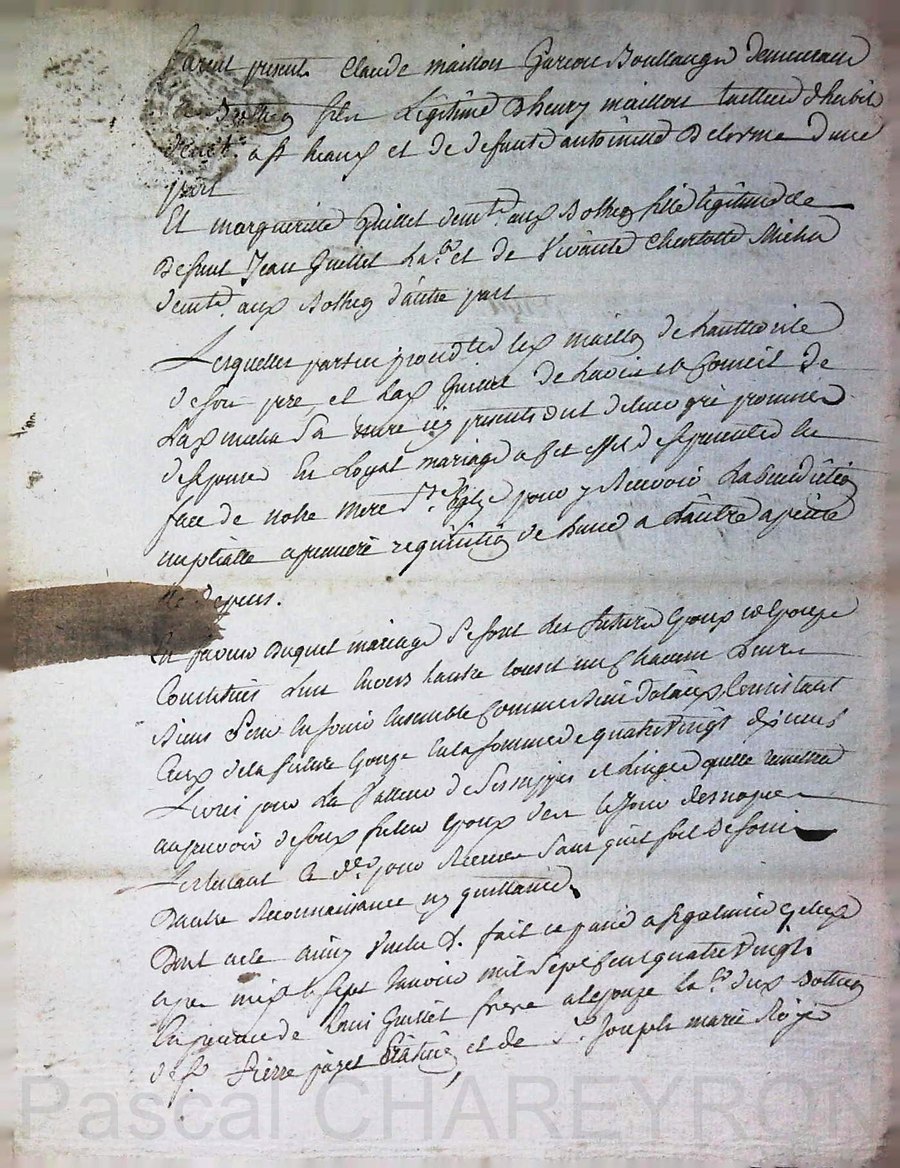 furent presents Claude maillon Garcon Boulanger demeurant
fils Légitime D'henry maillon tailleur d'habit
a st heaux et de defunte antoinette Delorme d'une
part
Et marguerite Guillet demte aux Bothes fille légitime de
Defunt Jean Guillet et de Vivante Charlotte Michu
demte aux Bothes d'autre part
Lesquelles parties procedtes led maillon de Lauttorité
de son pere et Lad Guillet de Lavis et Conseil de
Lad sa mere icy presents ont de leur gré promis
de se joindre En Loyal mariage a cet effet de se presenter En
face de notre mere Ste Eglise pour y Recevoir La benediction
nuptialle a premiere requisition de Lune a Lautre a peine
de depens.
En faveur Duquel mariage Se sont les futurs Epoux et Epouze
Constitués L'un Envers Lautre tous et un Chacun Leurs
Biens
Ceux de la future Epouze En la somme de quatre vingt dix neuf
Livres pour La Valleur de Ses nippes et Linges quelle remettra
au pouvoir de son futur Epoux le Jour des nopces
Lentenant Sans quil soit Besoin
Dautre Reconnaissance ny quittance
Dont acte ainsy Voulu & fait et passé a
apres midy le Sept Janvier mil Sept Cent quatre Vingt
En presence de Louis Guillet frere a lepouze
de sr Pierre et de Sr Joseph marie
Pascal CHAREYRON